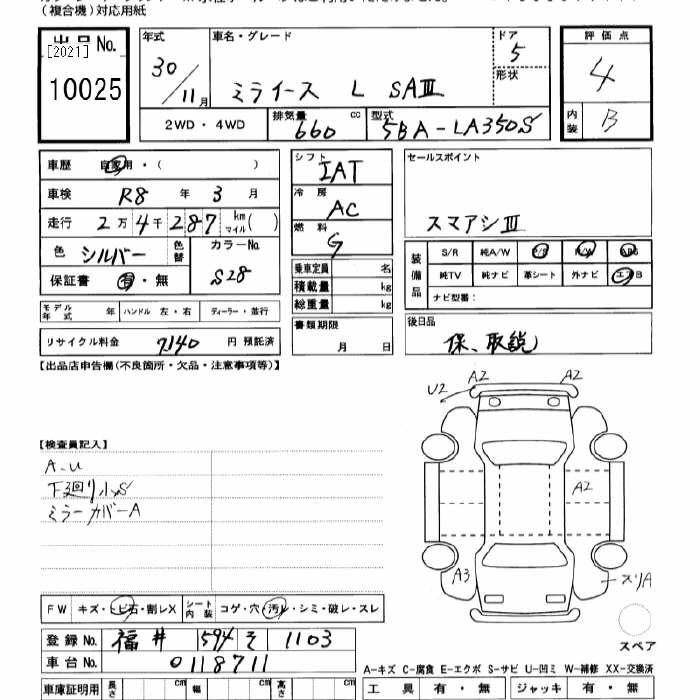 (複合機)対応用紙
出品No.
[2021]
10025
年式
30/11月
車名・グレード
ミライース L SAⅢ
ドア
5
形状
評価点
4
内装
B
2WD・4WD
排気量
660 cc
型式
5BA-LA350S
車歴 自家用・( )
車検 R8 年 3 月
走行 2万4千287 km マイル( )
色 シルバー 色替
カラーNo.
S28
保証書 有・無
モデル年式 年 ハンドル 左・右 ディーラー・並行
リサイクル料金 7140 円 預託済
シフト
IAT
冷房
AC
燃料
G
乗車定員 名
積載量 kg
総重量 kg
書類期限
月 日
セールスポイント
スマアシⅢ
装備品
S/R 純A/W P/S P/W ABS
純TV 純ナビ 革シート 外ナビ エアB
ナビ型番:
後日品
保、取説
【出品店申告欄(不良箇所・欠品・注意事項等)】
【検査員記入】
A-U
下廻り小S
ミラーカバーA
U2 A2 A2
A2
A3
スリA
スペア
FW キズ・トビ石・割レX
シート内装 コゲ・穴・汚レ・シミ・破レ・スレ
登録No. 福井 594 そ 1103
車台No. 0118711
車庫証明用 長さ cm 幅 cm 高さ cm
A-キズ C-腐食 E-エクボ S-サビ U-凹ミ W-補修 XX-交換済
工具 有・無 ジャッキ 有・無